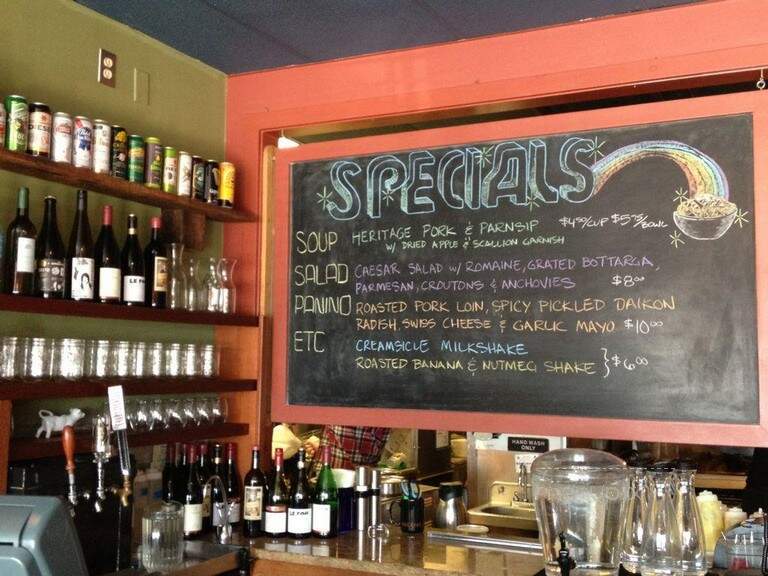 SPECIALS
SOUP HERITAGE PORK & PARNSIP $4.50/CUP $5.75/BOWL
W/ DRIED APPLE & SCALLION GARNISH
SALAD CAESAR SALAD W/ ROMAINE, GRATED BOTTARGA,
PARMESAN, CROUTONS & ANCHOVIES $8.00
PANINO ROASTED PORK LOIN, SPICY PICKLED DAIKON
RADISH, SWISS CHEESE & GARLIC MAYO $10.00
ETC CREAMSICLE MILKSHAKE
ROASTED BANANA & NUTMEG SHAKE } $6.00
HAND WASH
ONLY